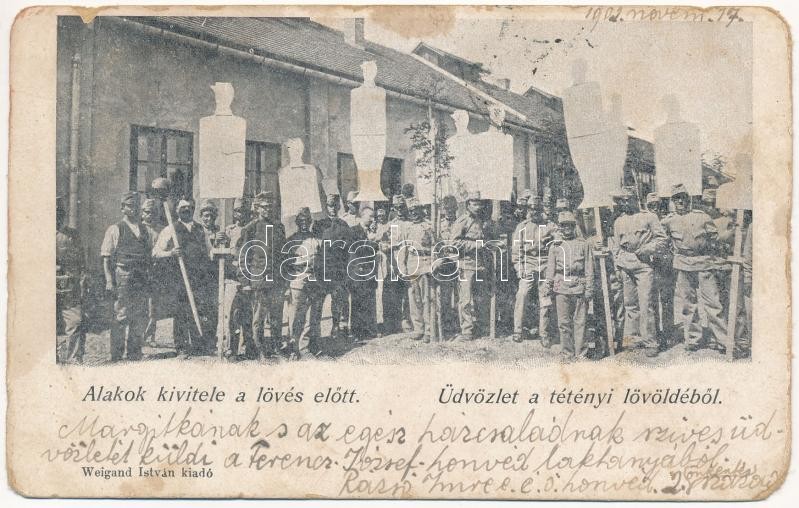 1902. novem. 17.
darabanth
Alakok kivitele a lövés előtt. Üdvözlet a tétényi lövöldéből.
Margitkának s az egész házcsaládnak szives üd-
vözletét küldi a Ferencz József-honvéd laktanyából.
Weigand István kiadó
Imre e. é. ö. honvéd. 28